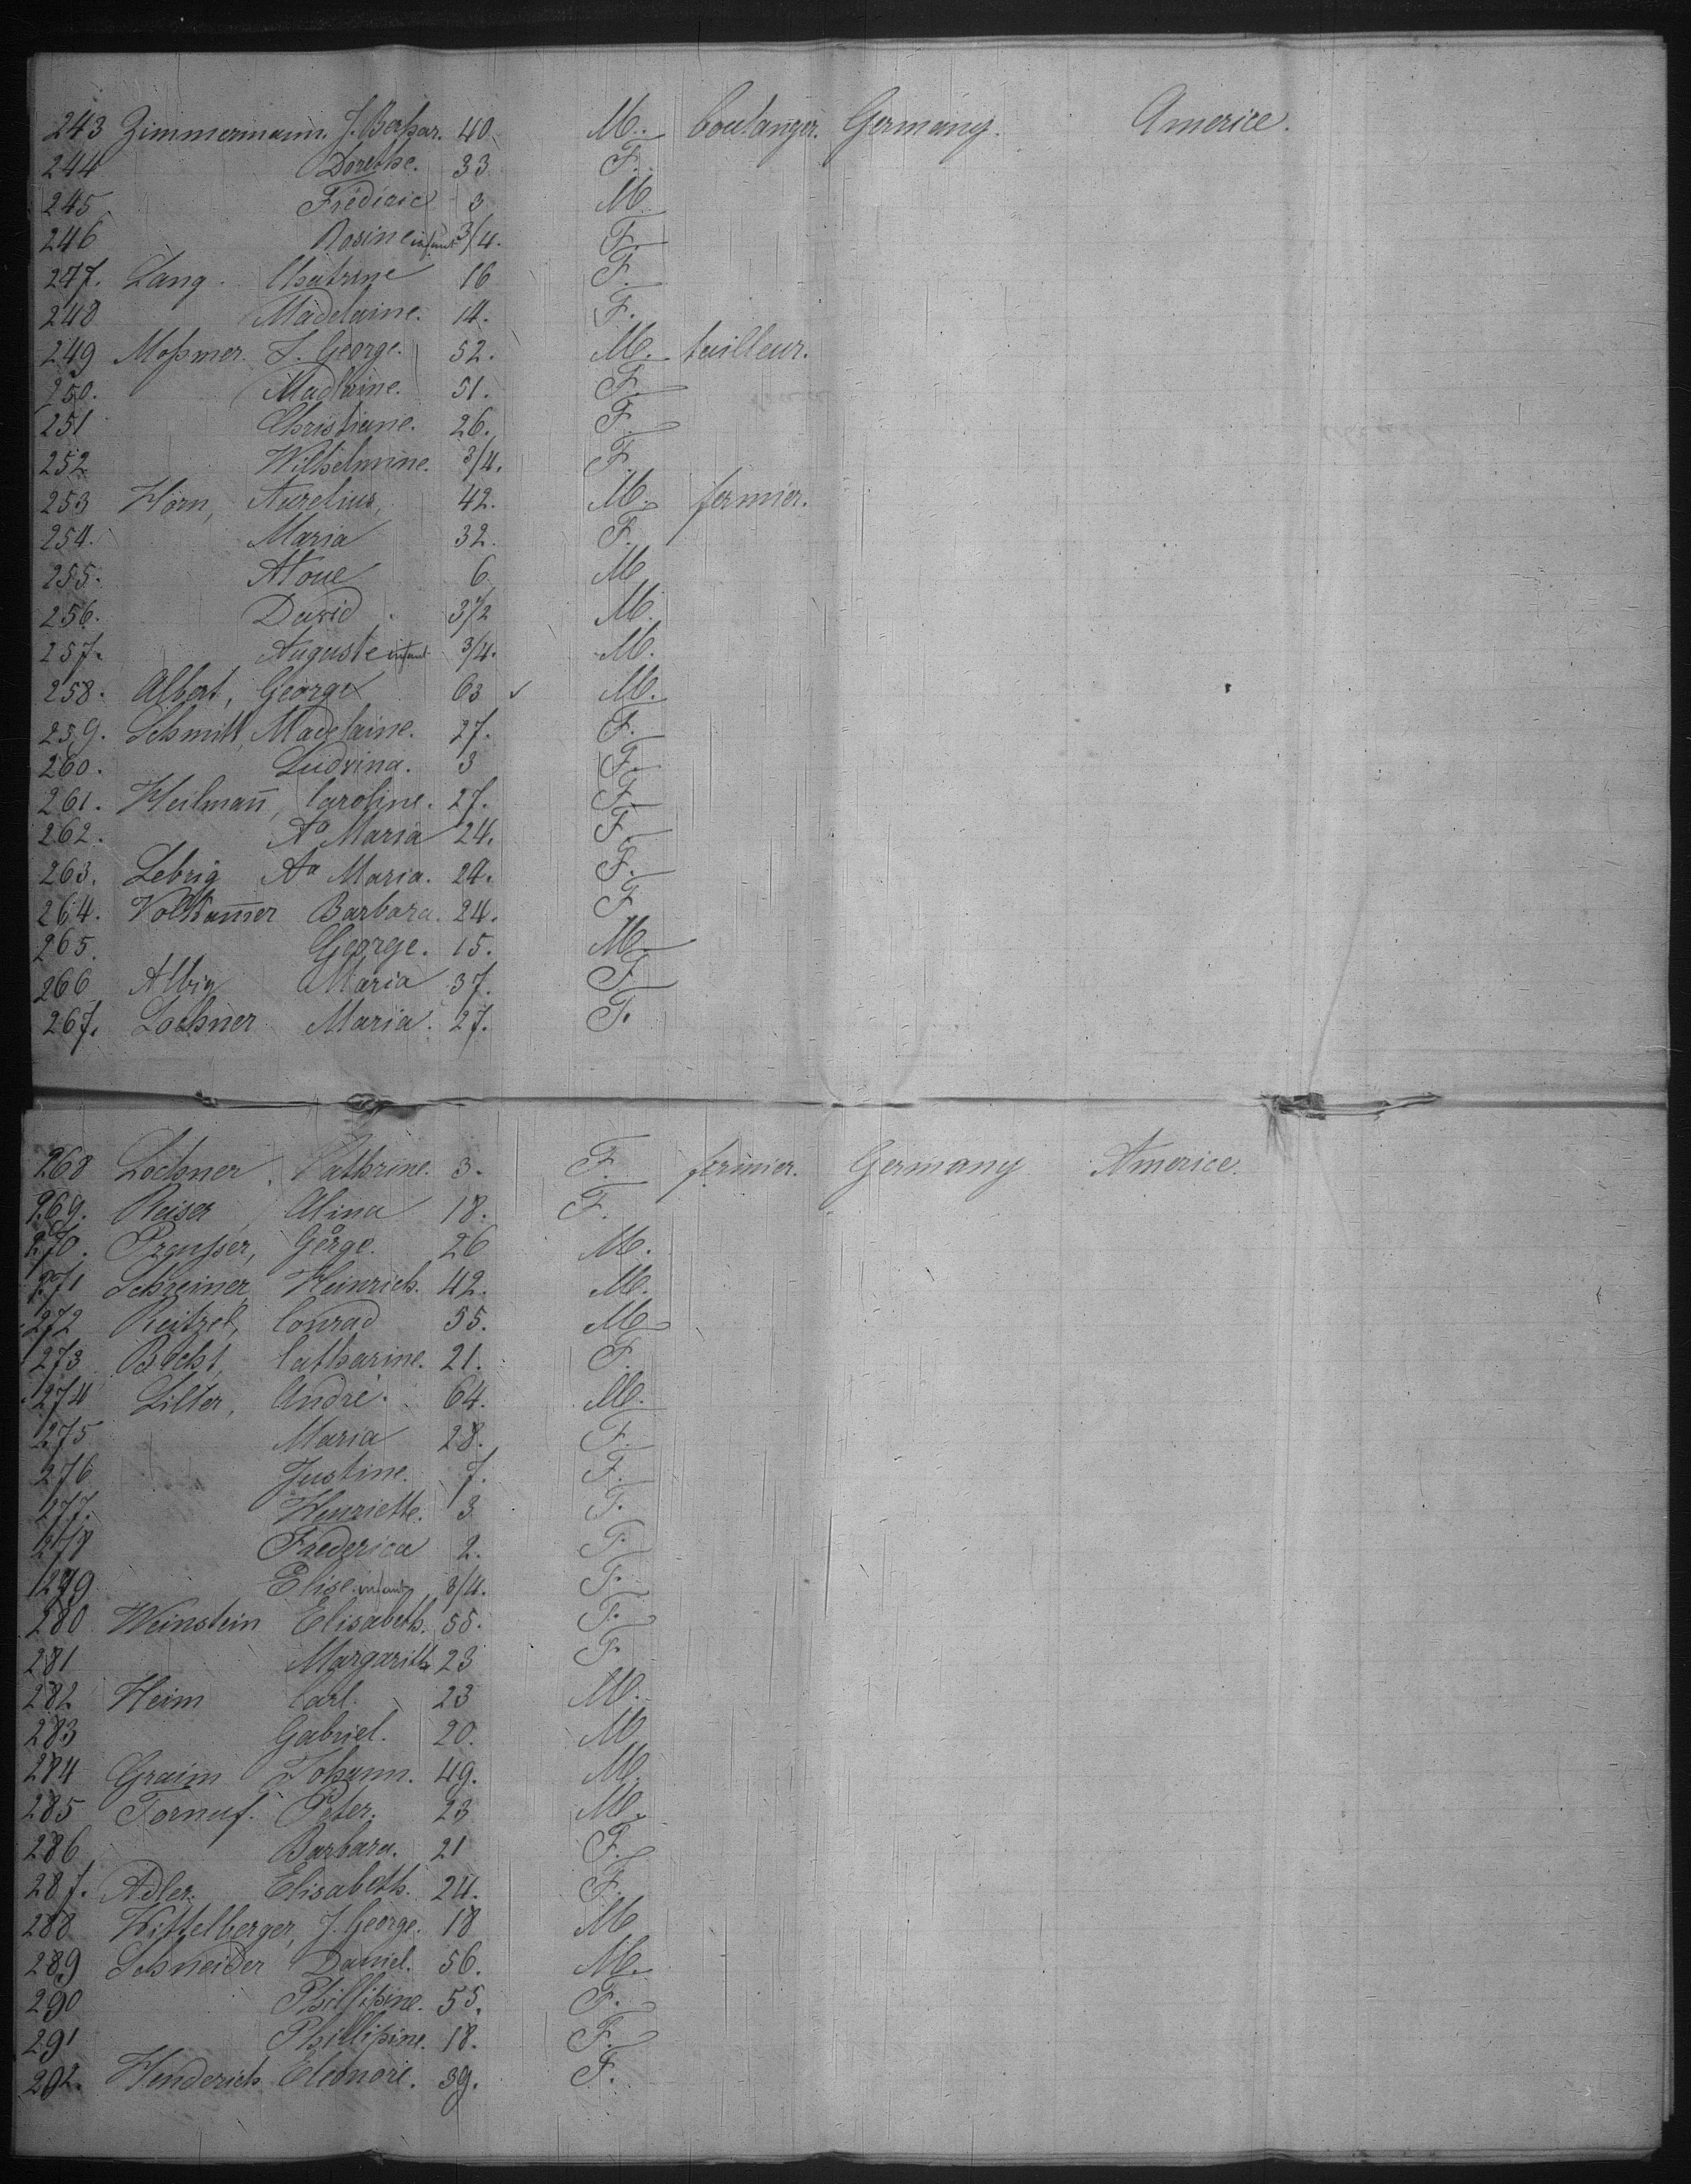 243 Zimmermann. J. Berhar. 40. M. boulanger. Germany. Americe.
244 Dorethe. 33 F.
245 Frédéric 3 M.
246 Rosine infant 3/4. F.
247. Lang. Chatrine 16 F.
248 Madelaine. 14. F.
249 Moßmer. J. George. 52. M. tailleur.
250. Madlaine. 51. F.
251 Christiane. 26. F.
252 Wilhelmine. 3/4. F.
253 Horn, Aurelius, 42. M. fermier.
254. Maria 32. F.
255. 6 M
256. David. 3 1/2 M.
257. Auguste infant 3/4. M.
258. Albert, George 63 ✓ M.
259. Schmitt, Madelaine. 27. F.
260. Ludvina. 3 F.
261. Heilman̄, Caroline. 27. F.
262. Aᵃ Maria 24. F.
263. Lebrig Aᵃ Maria. 24. F.
264. Volkam̄er Barbara. 24. F.
265. George. 15. M.
266 Albig Maria 37. F.
267. Lochner Maria. 27. F.
268 Lochner, Cathrine. 3. F. fermier. Germany Americe.
269. Reiser, Alina 18. F.
270. Preußer, Gerge. 26 M.
271 Schreiner, Heinrich. 42. M.
272 Reitzel, Conrad 55. M.
273 Becht, Catharine. 21. F.
274 Lilter, André. 64. M.
275 Maria 28. F.
276 Justine. 7. F.
277. Henriette. 3 F.
278 Frederica 2. F.
279 Elise. infant 3/4. F.
280 Weinstein Elisabeth. 55. F.
281 Margarith 23 F.
282 Heim Carl. 23 M.
283 Gabriel. 20. M.
284 Graim Johann. 49. M.
285 Tornuf. Peter. 23 M.
286 Barbara. 21 F.
287. Adler. Elisabeth. 24. F.
288 Wittelberger, J. George. 18 M
289 Schneider Daniel. 56. M.
290 Phillipine. 55. F.
291 Phillipine. 18. F.
292. Henderich Eleonore. 39. F.